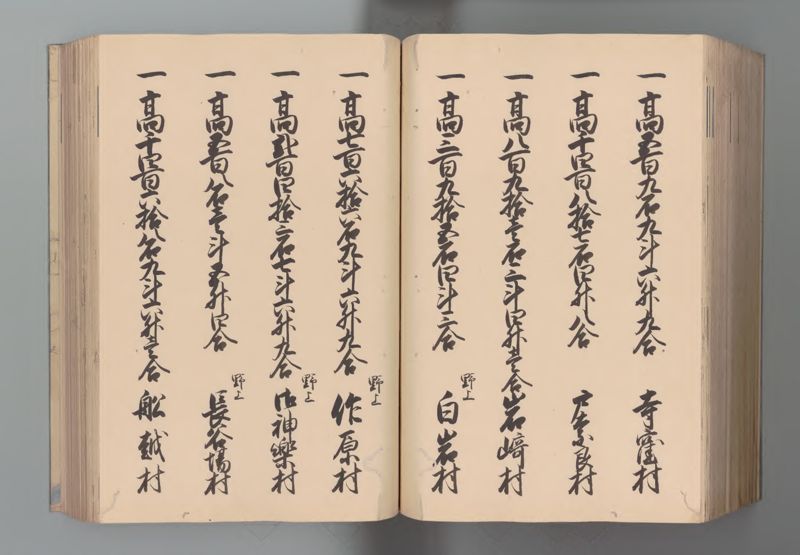 一高五百九石九斗六升九合 寺窪村
一高千四百八拾七石四升八合 奈良村
一高八百九拾壱石二斗四升壱合 岩﨑村
一高三百九拾五石四斗三合 野上 白岩村
一高七百六拾六石九斗六升九合 野上 作原村
一高弐百四拾三石七斗六升九合 野上 御神楽村
一高五百八石壱斗五升四合 野上 長谷場村
一高千四百六拾八石九斗六升壱合 船越村